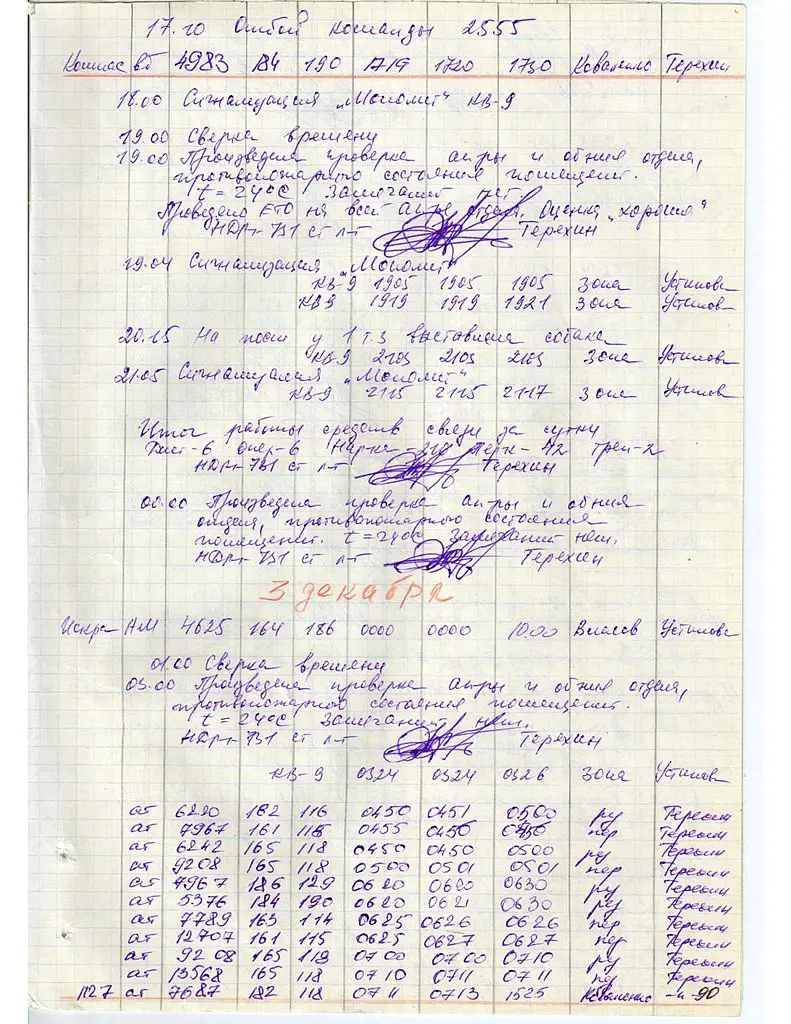 17.10 Отбой команды 2555
Компас вб 4983 184 190 1719 1720 1730 Коваленко Терехин
18.00 Сигнализация „Монолит" КВ-9
19.00 Сверка времени
19.00 Произведена проверка ап-ры и обния отдел,
противопожарного состояния помещений.
t = 24°С Замечаний нет
Проведено ЕТО на всей ап-ре отдел. Оценка „хорошо"
НДР-731 ст л-т Терехин
19.04 Сигнализация „Монолит"
КВ-9 1905 1905 1905 Зона Устинов
КВ9 1919 1919 1921 Зона Устинов
20.15 На пост у 1 т.з выставлена собака
КВ-9 2103 2103 2103 Зона Устинов
21.05 Сигнализация „Монолит"
КВ-9 2115 2115 2117 Зона Устинов
Итог работы средств связи за сутки
6 Опер-6
НДР-731 ст л-т Терехин
00.00 Произведена проверка ап-ры и обния
отдел, противопожарного состояния
помещений. t = 24°С Замечаний нет.
НДР-731 ст л-т Терехин
3 декабря
Искра АМ 4625 164 186 0000 0000 10.00 Власов Устинов
01.00 Сверка времени
03.00 Произведена проверка ап-ры и обния отдел,
противопожарного состояния помещений.
t = 24°С Замечаний нет.
НДР-731 ст л-т Терехин
КВ-9 0324 0324 0326 Зона Устинов
ат 6220 182 116 0450 0451 0500 ру Терехин
ат 7967 161 118 0455 0450 пер Терехин
ат 6242 165 118 0450 0450 0500 ру Терехин
ат 9208 165 118 0500 0501 0501 пер Терехин
ат 4967 186 129 0620 0620 0630 ру Терехин
ат 5376 184 190 0620 0621 0630 ру Терехин
ат 7789 163 114 0625 0626 0626 пер Терехин
ат 12707 161 115 0625 0627 0627 пер Терехин
ат 9208 165 118 0700 0700 0710 ру Терехин
ат 13568 165 118 0710 0711 0711 ру Терехин
1127 ат 7687 182 118 0711 0713 1525 Коваленко -"- 90